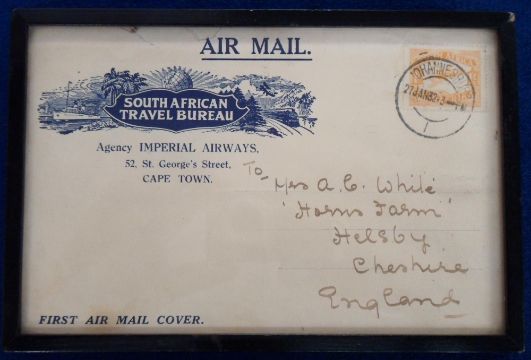 AIR MAIL.
SOUTH AFRICAN
TRAVEL BUREAU
Agency IMPERIAL AIRWAYS,
52, St. George's Street,
CAPE TOWN.
To
Mrs A. C. White
"Horns Farm"
Helsby
Cheshire
England
FIRST AIR MAIL COVER.